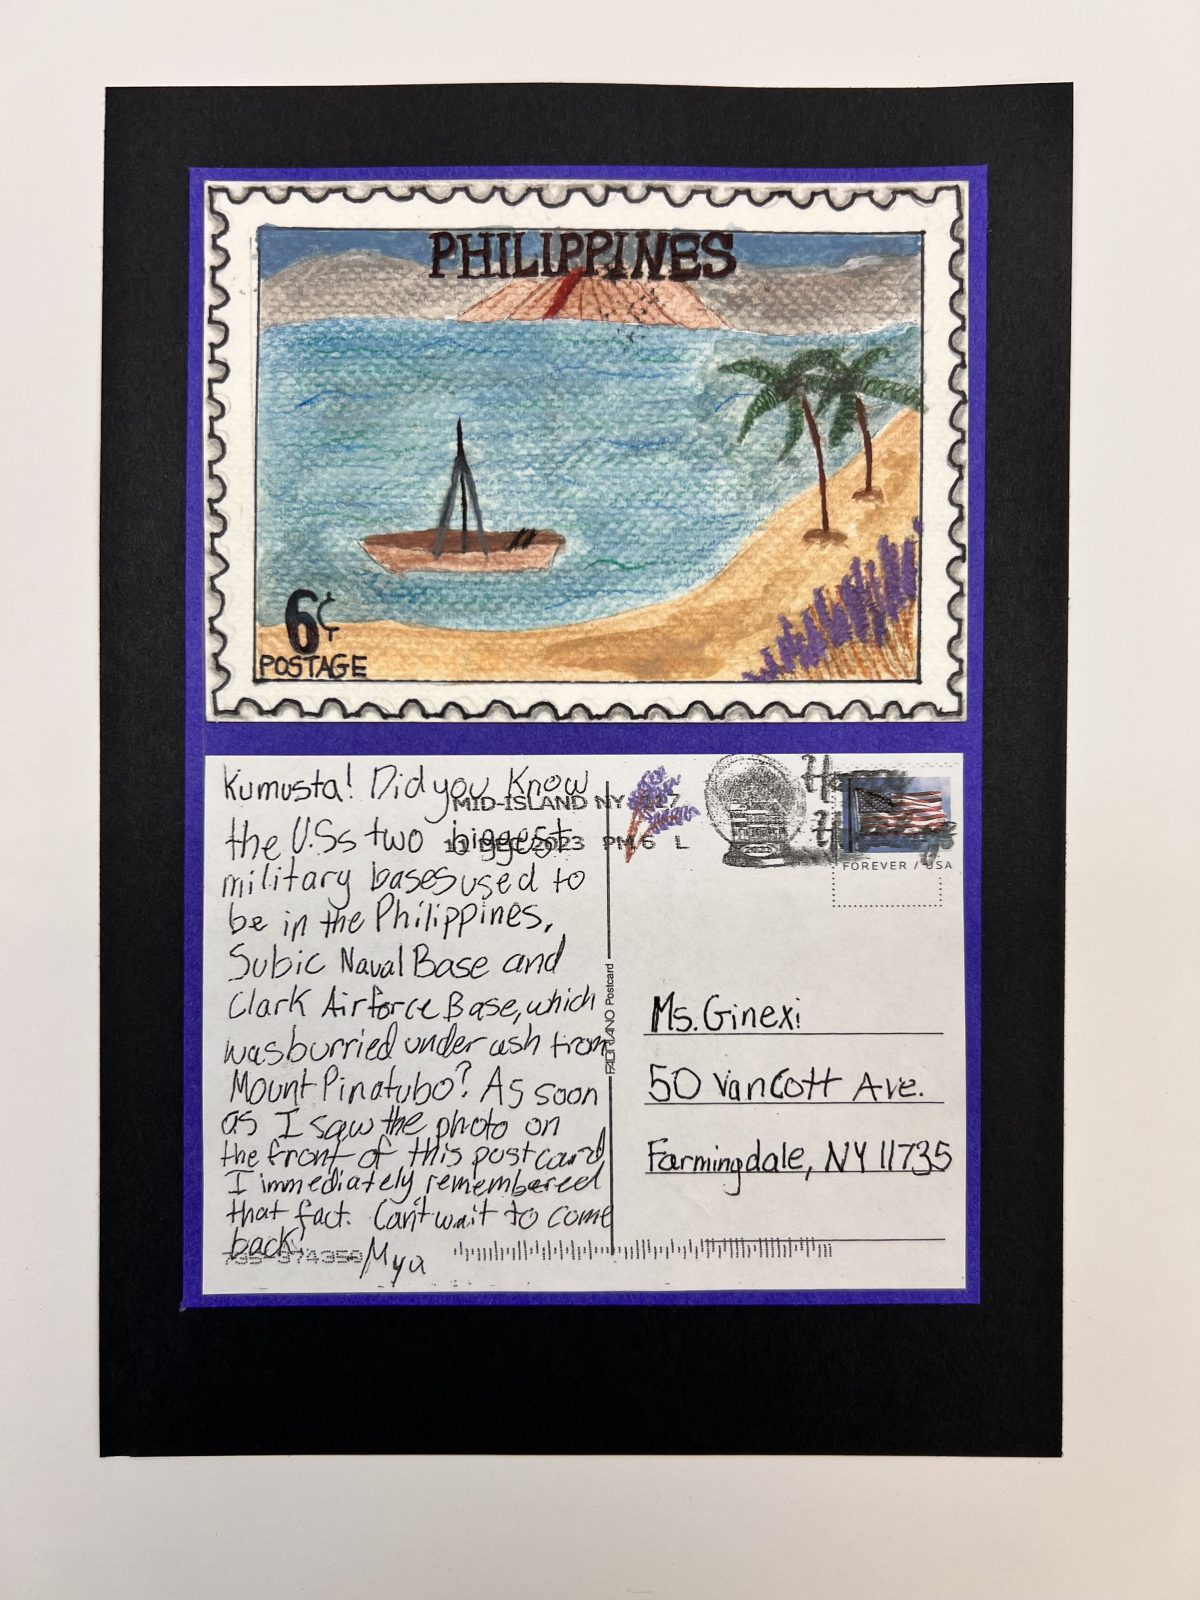 PHILIPPINES
6¢
POSTAGE
Kumusta! Did you know
the U.Ss two biggest
military bases used to
be in the Philippines,
Subic Naval Base and
Clark Airforce Base, which
was burried under ash from
Mount Pinatubo? As soon
as I saw the photo on
the front of this postcard
I immediately remembered
that fact. Can't wait to come
back!
Mya
MID-ISLAND NY 117
11 DEC 2023 PM 6 L
FOREVER / USA
FABRIANO Postcard
Ms. Ginexi
50 Van Cott Ave.
Farmingdale, NY 11735